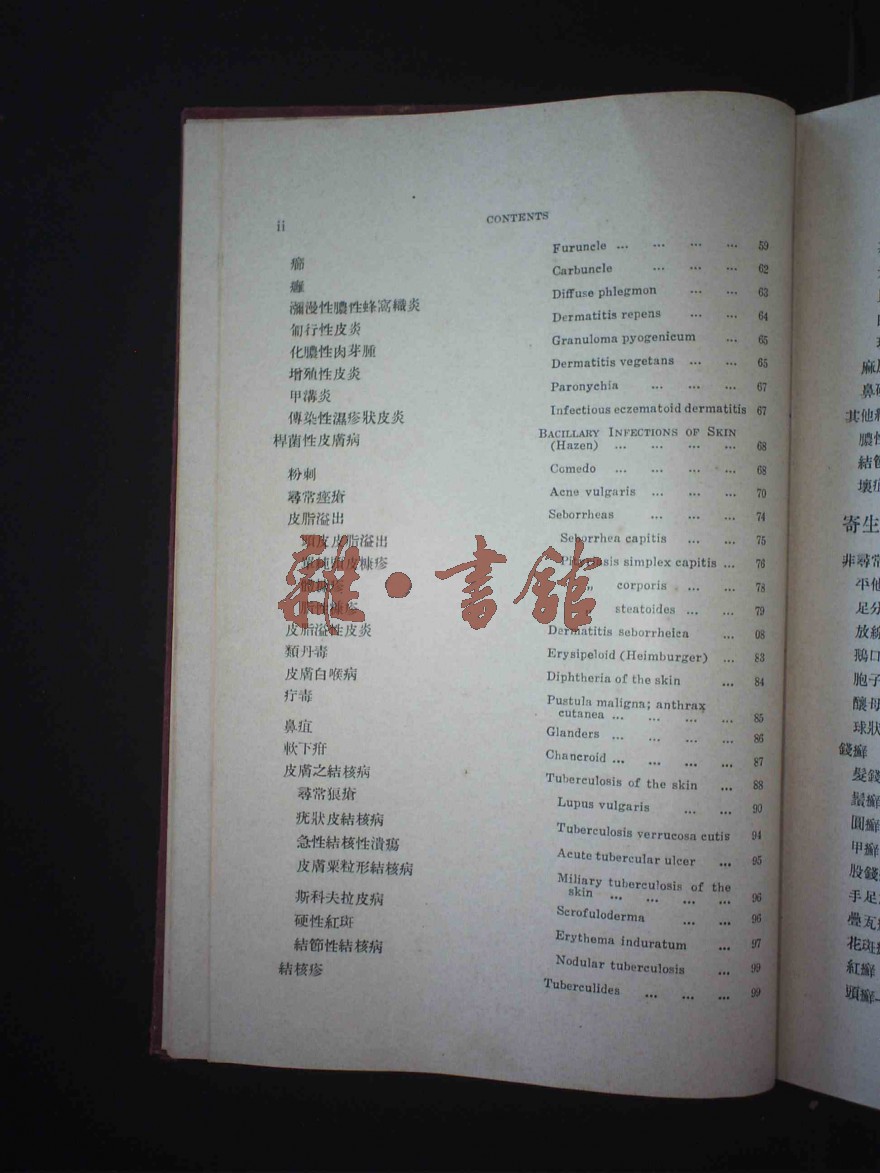 ii CONTENTS
癤 Furuncle ... ... ... ... 59
癰 Carbuncle ... ... ... 62
瀰漫性膿性蜂窩織炎 Diffuse phlegmon ... ... 63
匐行性皮炎 Dermatitis repens ... ... 64
化膿性肉芽腫 Granuloma pyogenicum ... 65
增殖性皮炎 Dermatitis vegetans ... ... 65
甲溝炎 Paronychia ... ... ... 67
傳染性濕疹狀皮炎 Infectious eczematoid dermatitis 67
桿菌性皮膚病 BACILLARY INFECTIONS OF SKIN
(Hazen) ... ... ... ... 68
粉刺 Comedo ... ... ... ... 68
尋常痤瘡 Acne vulgaris ... ... ... 70
皮脂溢出 Seborrheas ... ... ... 74
頭皮皮脂溢出 Seborrhea capitis ... ... 75
單純頭皮糠疹 Pityriasis simplex capitis ... 76
糠疹 „ corporis ... ... 78
脂性糠疹 steatoides ... ... 79
皮脂溢性皮炎 Dermatitis seborrheica ... 08
類丹毒 Erysipeloid (Heimburger) ... 83
皮膚白喉病 Diphtheria of the skin ... 84
疔毒 Pustula maligna; anthrax
cutanea ... ... ... ... 85
鼻疽 Glanders ... ... ... ... 86
軟下疳 Chancroid ... ... ... ... 87
皮膚之結核病 Tuberculosis of the skin ... 88
尋常狼瘡 Lupus vulgaris ... ... 90
疣狀皮結核病 Tuberculosis verrucosa cutis 94
急性結核性潰瘍 Acute tubercular ulcer ... 95
皮膚粟粒形結核病 Miliary tuberculosis of the
skin ... ... ... ... 96
斯科夫拉皮病 Scrofuloderma ... ... 96
硬性紅斑 Erythema induratum ... 97
結節性結核病 Nodular tuberculosis ... 99
結核疹 Tuberculides ... ... ... 99
雜·書館
麻
鼻
其他
膿
結
壞
寄生
非尋常
平他
足分
放線
鵝口
胞子
釀母
球狀
錢癬
髮錢
鬚癬
圓癬
甲癬
股錢
手足
疊瓦
花斑
紅癬
頭癬